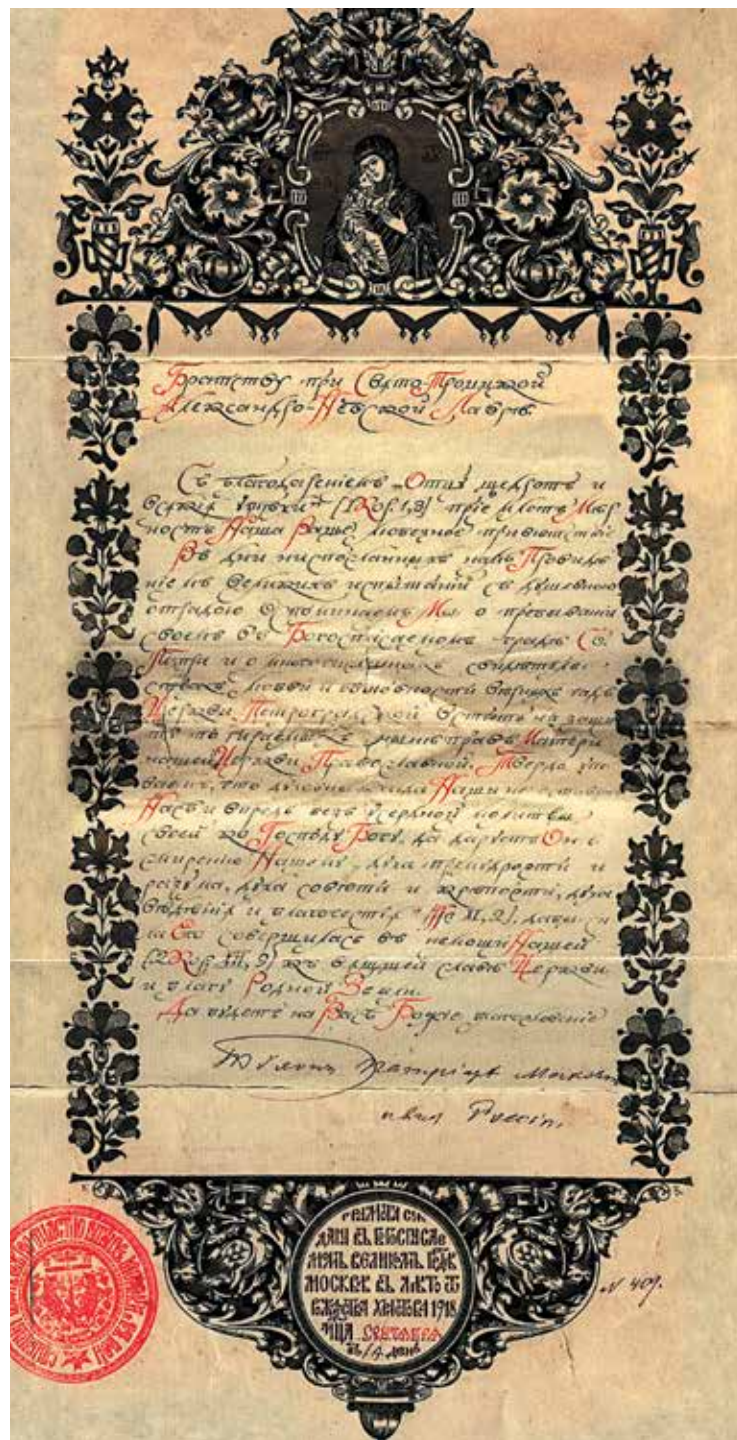 Братству при Свято-Троицкой
Александро-Невской Лаврѣ.
Съ благодареніемъ „Отцу щедротъ и
всякія утѣхи“ [2 Кор. 1,3] пріемлетъ Мѣр
ность Наша Ваше любезное привѣтствіе
Въ дни ниспосланныхъ намъ Провидѣ
ніемъ великихъ испытаній съ душевною
отрадою вспоминаемъ Мы о пребываніи
своемъ въ Богоспасаемомъ градѣ Св.
Петра и о многочисленныхъ свидѣтель
ствахъ любви и вѣрныхъ чадъ
Церкви Петроградской встать на защи
ту правъ Матери
нашей Церкви Православной. Твердо упо
ваемъ, что духовныя чада Наши не оставятъ
Насъ и впредь безъ усердной молитвы
своей ко Господу Богу, да даруетъ Онъ
смиренію Нашему „духа премудрости и
разума, духа совѣта и крѣпости, духа
вѣдѣнія и благочестія“ [Ис XI, 2], дабы си
ла Его совершилась въ немощи Нашей
[2 Кор XII, 9] къ вящщей славѣ Церкви
и благу Родной Земли.
Да будетъ на Васъ Божіе благословеніе
Тихонъ Патріархъ Московскій
и всея Россіи.
ГРАМАТА СІЯ
ДАНА ВЪ БОГОСПАСАЕ
МОМЪ ВЕЛИКОМЪ ГРАДѢ
МОСКВѢ ВЪ ЛѢТО ОТ
РОЖДЕСТВА ХРИСТОВА 1918
МѢСЯЦА Сентября
ВЪ 14 ДЕНЬ
N 409.